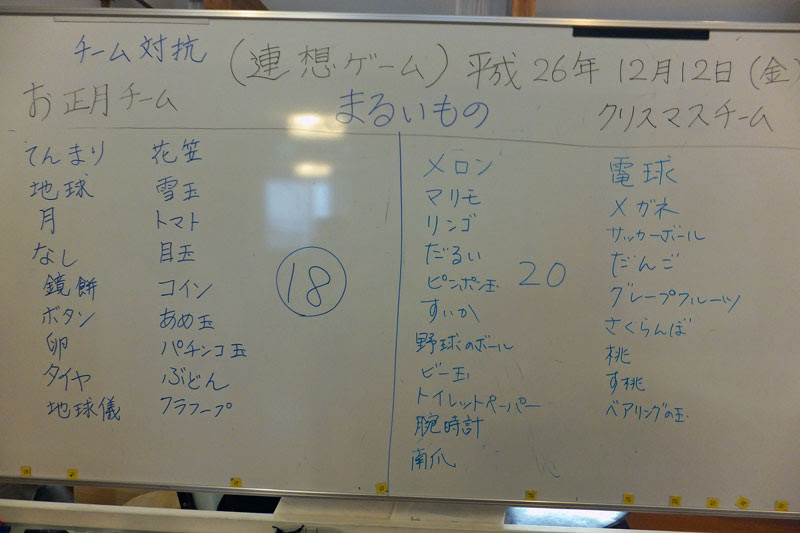 チーム対抗 (連想ゲーム) 平成26年12月12日(金)
お正月チーム まるいもの クリスマスチーム
てんまり 花笠
地球 雪玉
月 トマト
なし 目玉
鏡餅 コイン
ボタン あめ玉
卵 パチンコ玉
タイヤ ぶどん
地球儀 フラフープ
18
メロン
マリモ
リンゴ
だるい
ピンポン玉
すいか
野球のボール
ビー玉
トイレットペーパー
腕時計
南瓜
20
電球
メガネ
サッカーボール
だんご
グレープフルーツ
さくらんぼ
桃
す桃
ベアリングの玉